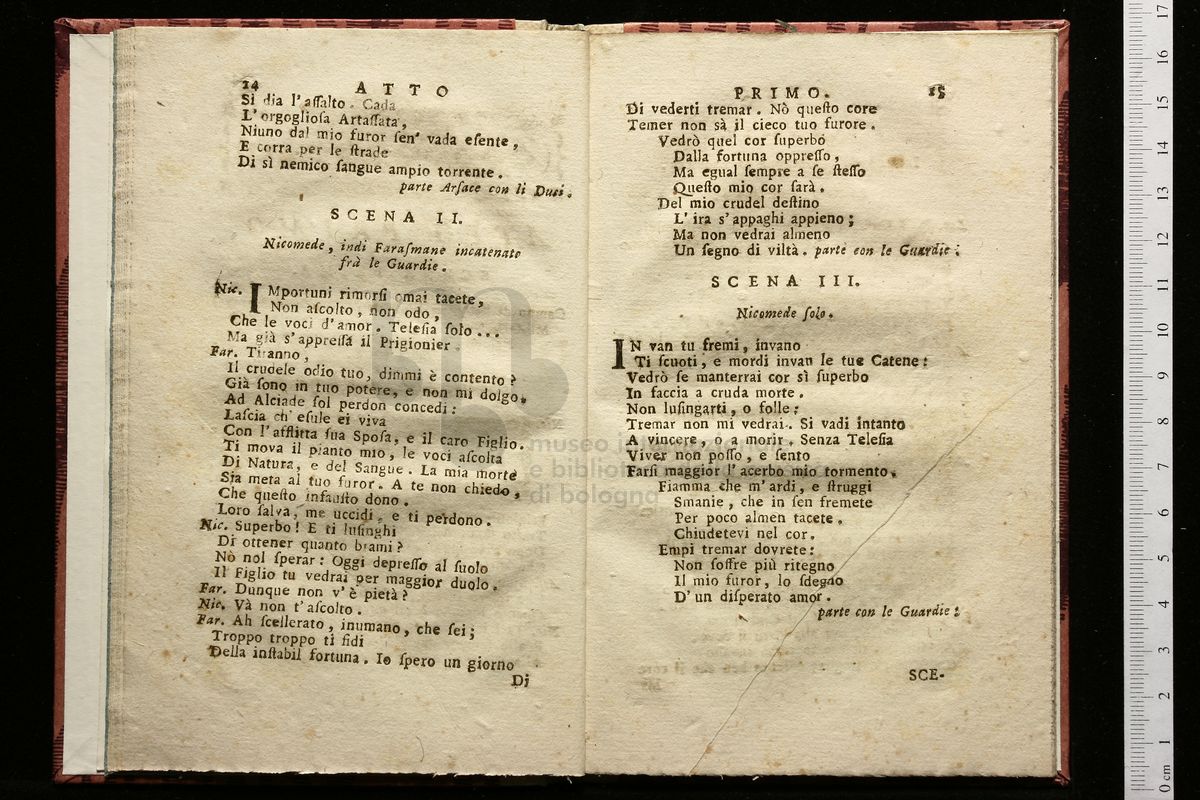 14 ATTO
Si dia l'aſſalto. Cada
L'orgoglioſa Artaſſata,
Niuno dal mio furor ſen' vada eſente,
E corra per le ſtrade
Di sì nemico ſangue ampio torrente.
parte Arſace con li Duci.
SCENA II.
Nicomede, indi Faraſmane incatenato
frà le Guardie.
Nic. IMportuni rimorſi omai tacete,
Non aſcolto, non odo,
Che le voci d'amor. Teleſia ſolo...
Ma già s'appreſſa il Prigionier.
Far. Tiranno,
Il crudele odio tuo, dimmi è contento?
Già ſono in tuo potere, e non mi dolgo,
Ad Alciade ſol perdon concedi:
Laſcia ch'eſule ei viva
Con l'afflitta ſua Spoſa, e il caro Figlio.
Ti mova il pianto mio, le voci aſcolta
Di Natura, e del Sangue. La mia morte
Sia meta al tuo furor. A te non chiedo,
Che queſto infauſto dono.
Loro ſalva, me uccidi, e ti perdono.
Nic. Superbo! E ti luſinghi
Di ottener quanto brami?
Nò nol ſperar: Oggi depreſſo al ſuolo
Il Figlio tu vedrai per maggior duolo.
Far. Dunque non v'è pietà?
Nic. Và non t'aſcolto.
Far. Ah ſcellerato, inumano, che ſei;
Troppo troppo ti fidi
Della inſtabil fortuna. Io ſpero un giorno
Di
PRIMO. 15
Di vederti tremar. Nò queſto core
Temer non sà il cieco tuo furore.
Vedrò quel cor ſuperbo
Dalla fortuna oppreſſo,
Ma egual ſempre a ſe ſteſſo
Queſto mio cor ſarà.
Del mio crudel deſtino
L'ira s'appaghi appieno;
Ma non vedrai almeno
Un ſegno di viltà. parte con le Guardie.
SCENA III.
Nicomede ſolo.
IN van tu fremi, invano
Ti ſcuoti, e mordi invan le tue Catene:
Vedrò ſe manterrai cor sì ſuperbo
In faccia a cruda morte.
Non luſingarti, o folle:
Tremar non mi vedrai. Si vadi intanto
A vincere, o a morir. Senza Teleſia
Viver non poſſo, e ſento
Farſi maggior l'acerbo mio tormento.
Fiamma che m'ardi, e ſtruggi
Smanie, che in ſen fremete
Per poco almen tacete.
Chiudetevi nel cor.
Empi tremar dovrete:
Non ſoffre più ritegno
Il mio furor, lo ſdegno
D'un diſperato amor.
parte con le Guardie.
SCE-
museo
e bibliot
di bologna